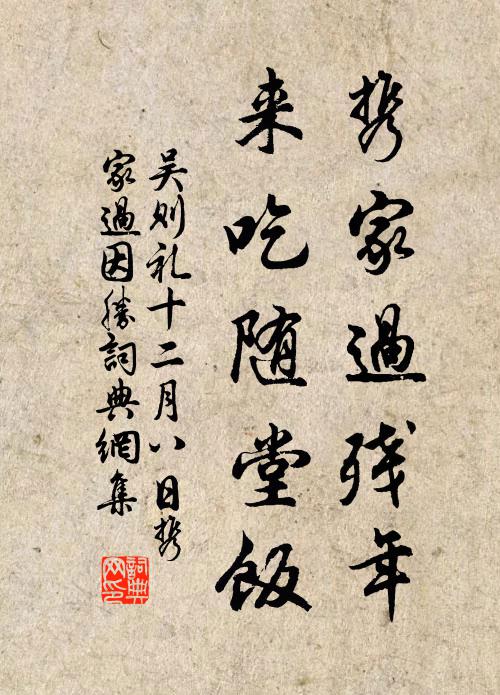 携家過残年
来吃随堂飯
吴则礼十二月八日携
家過因勝詞典網集
詞典網印